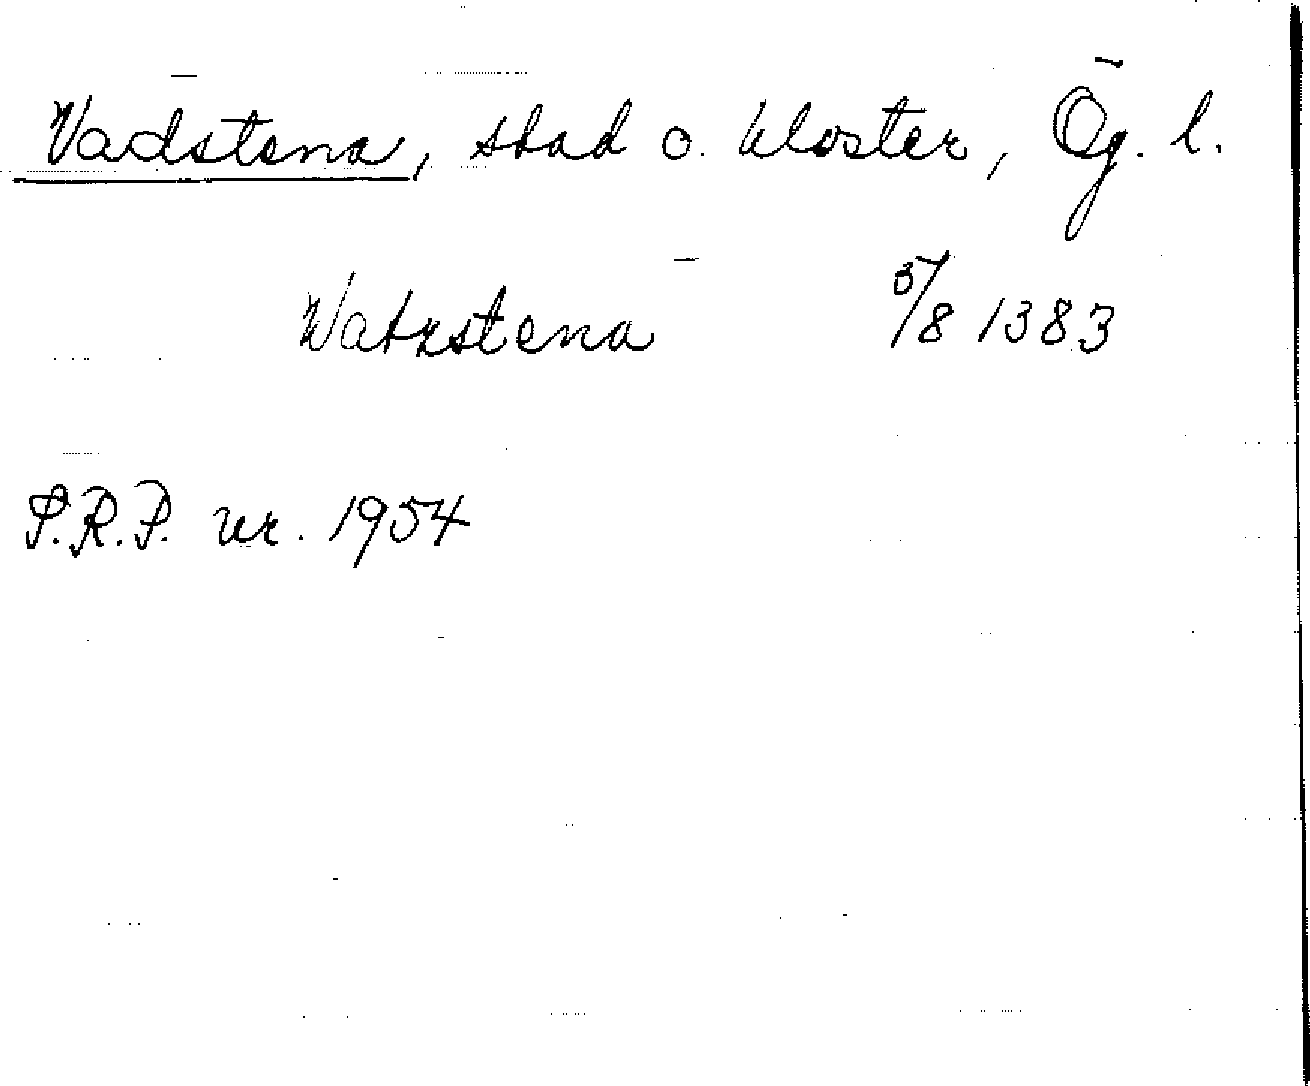 Vadstena, stad o. kloster, Ög. l.
Watzstena 5/8 1383
S.R.P. nr. 1954